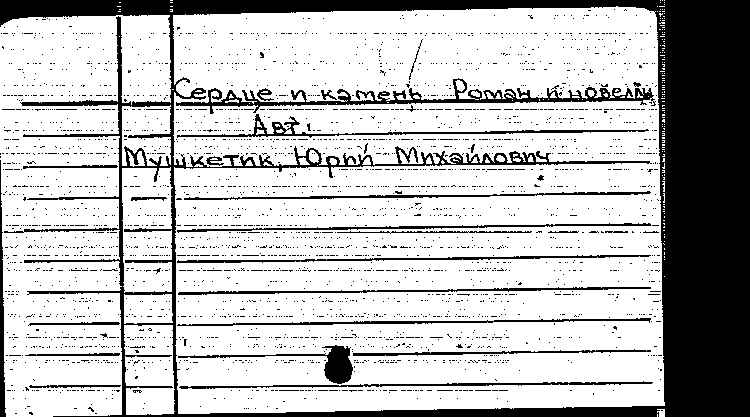 Сердце и камень Роман и новеллы
Авт.:
Мушкетик, Юрий Михайлович